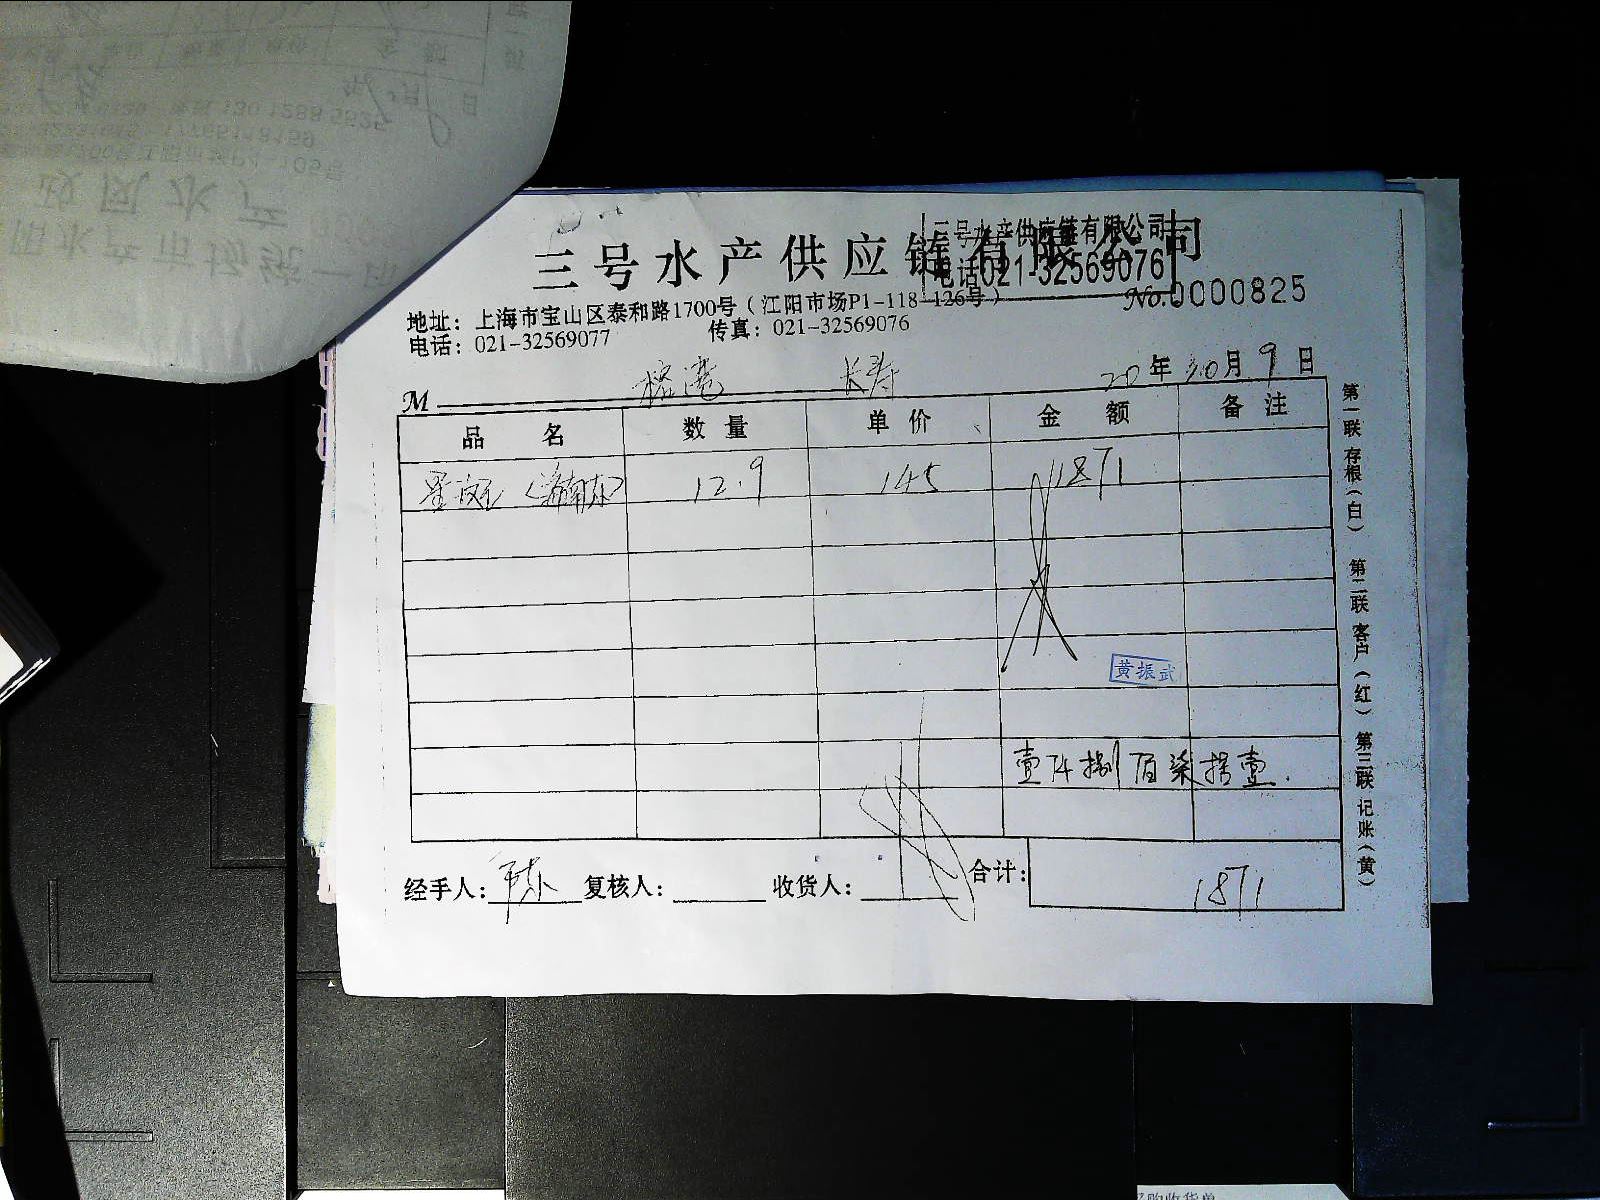 三号水产供应链有限公司
三号水产供应链有限公司
电话021-32569076
No.0000825
地址：上海市宝山区泰和路1700号（江阳市场P1-118-126号）
电话：021-32569077 传真：021-32569076
M 榕港 长寿 20年 10月 9日
品名 数量 单价 金额 备注
星斑（海南东） 12.9 145 1871
黄振武
壹仟捌佰柒拾壹
经手人： 复核人： 收货人： 合计： 1871
第一联 存根（白） 第二联 客户（红） 第三联 记账（黄）